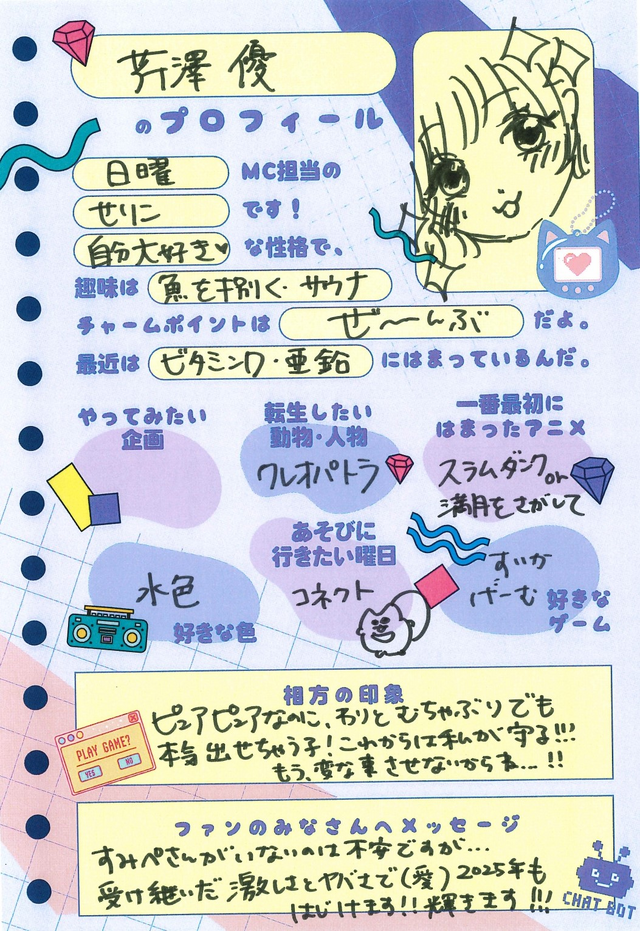 芹澤 優
のプロフィール
日曜 MC担当の
せりこ です！
自分大好き♥ な性格で、
趣味は 魚を捌く・サウナ
チャームポイントは ぜ〜んぶ だよ。
最近は ビタミンC・亜鉛 にはまっているんだ。
やってみたい
企画
転生したい
動物・人物
クレオパトラ
一番最初に
はまったアニメ
スラムダンクor
満月をさがして
水色
好きな色
あそびに
行きたい曜日
コネクト
すいか
げーむ
好きな
ゲーム
相方の印象
ピュアピュアなのに、わりとむちゃぶりでも
本気出せちゃう子！これからは私が守る!!!
もう、変な事させないからね…!!
PLAY GAME?
YES NO
ファンのみなさんへメッセージ
すみぺさんがいないのは不安ですが…
受け継いだ激しさとヤバさで(愛)2025年も
はじけます!!輝きます!!!
CHAT BOT